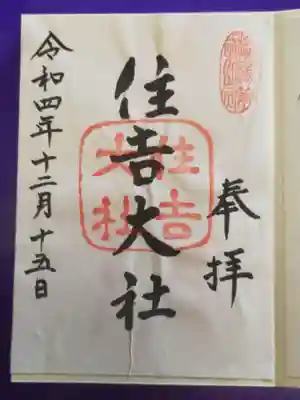 奉拝
住吉大社
住吉
大社
令和四年十二月十五日